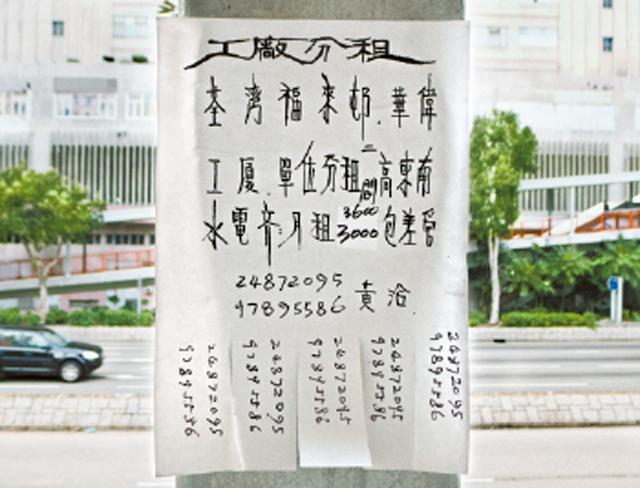 工廠分租
荃灣福來邨.華偉
工厦.單位分租二間高東南
水電齊:月租3600 3000包差管
24872095
97895586 黃洽
24872095
97895586
24872095
97895586
24872095
97895586
24872095
97895586
24872095
97895586